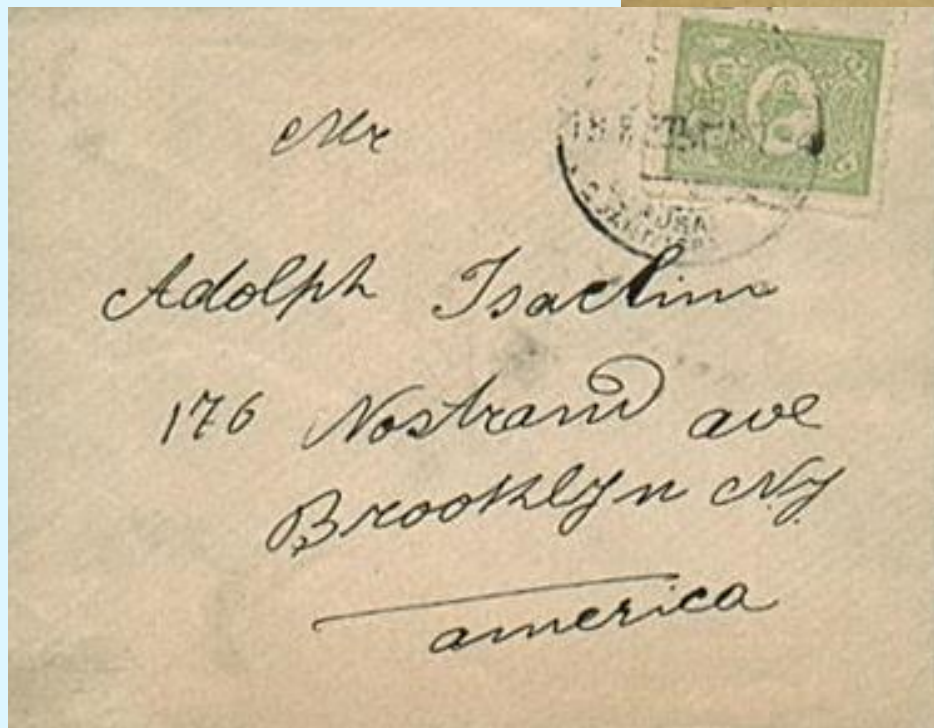 Mr
Adolph Isaclim
176 Nostrand ave
Brooklyn Ny
america